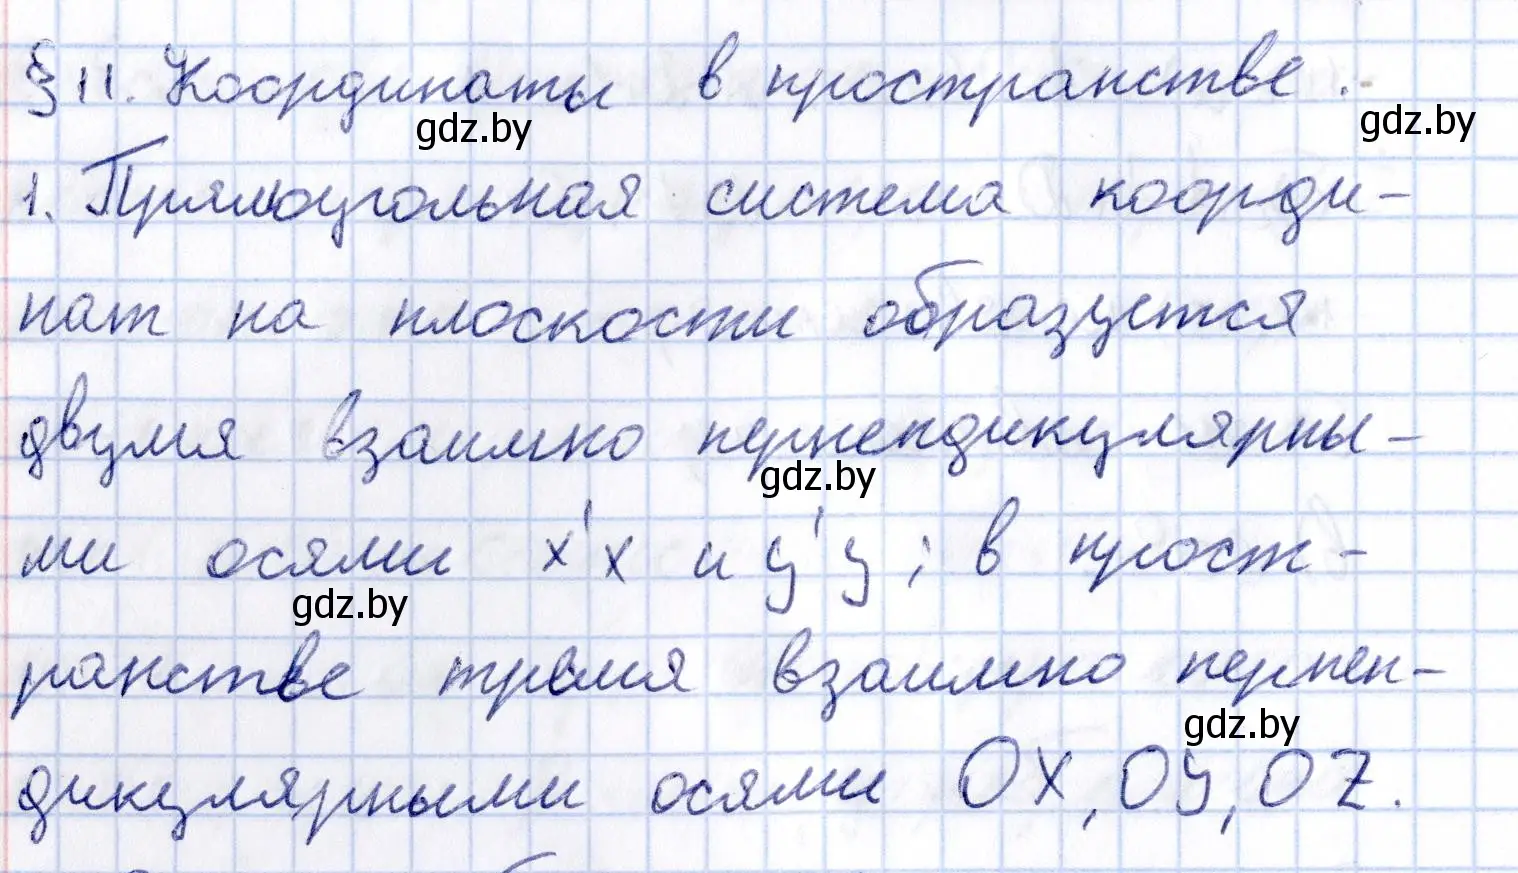 § 11. Координаты в пространстве.
gdz.by
gdz.by
1. Прямоугольная система коорди-
нат на плоскости образуется
двумя взаимно перпендикулярны-
gdz.by
ми осями x'x и y'y; в прост-
gdz.by
ранстве тремя взаимно перпен-
gdz.by
дикулярными осями OX, OY, OZ.